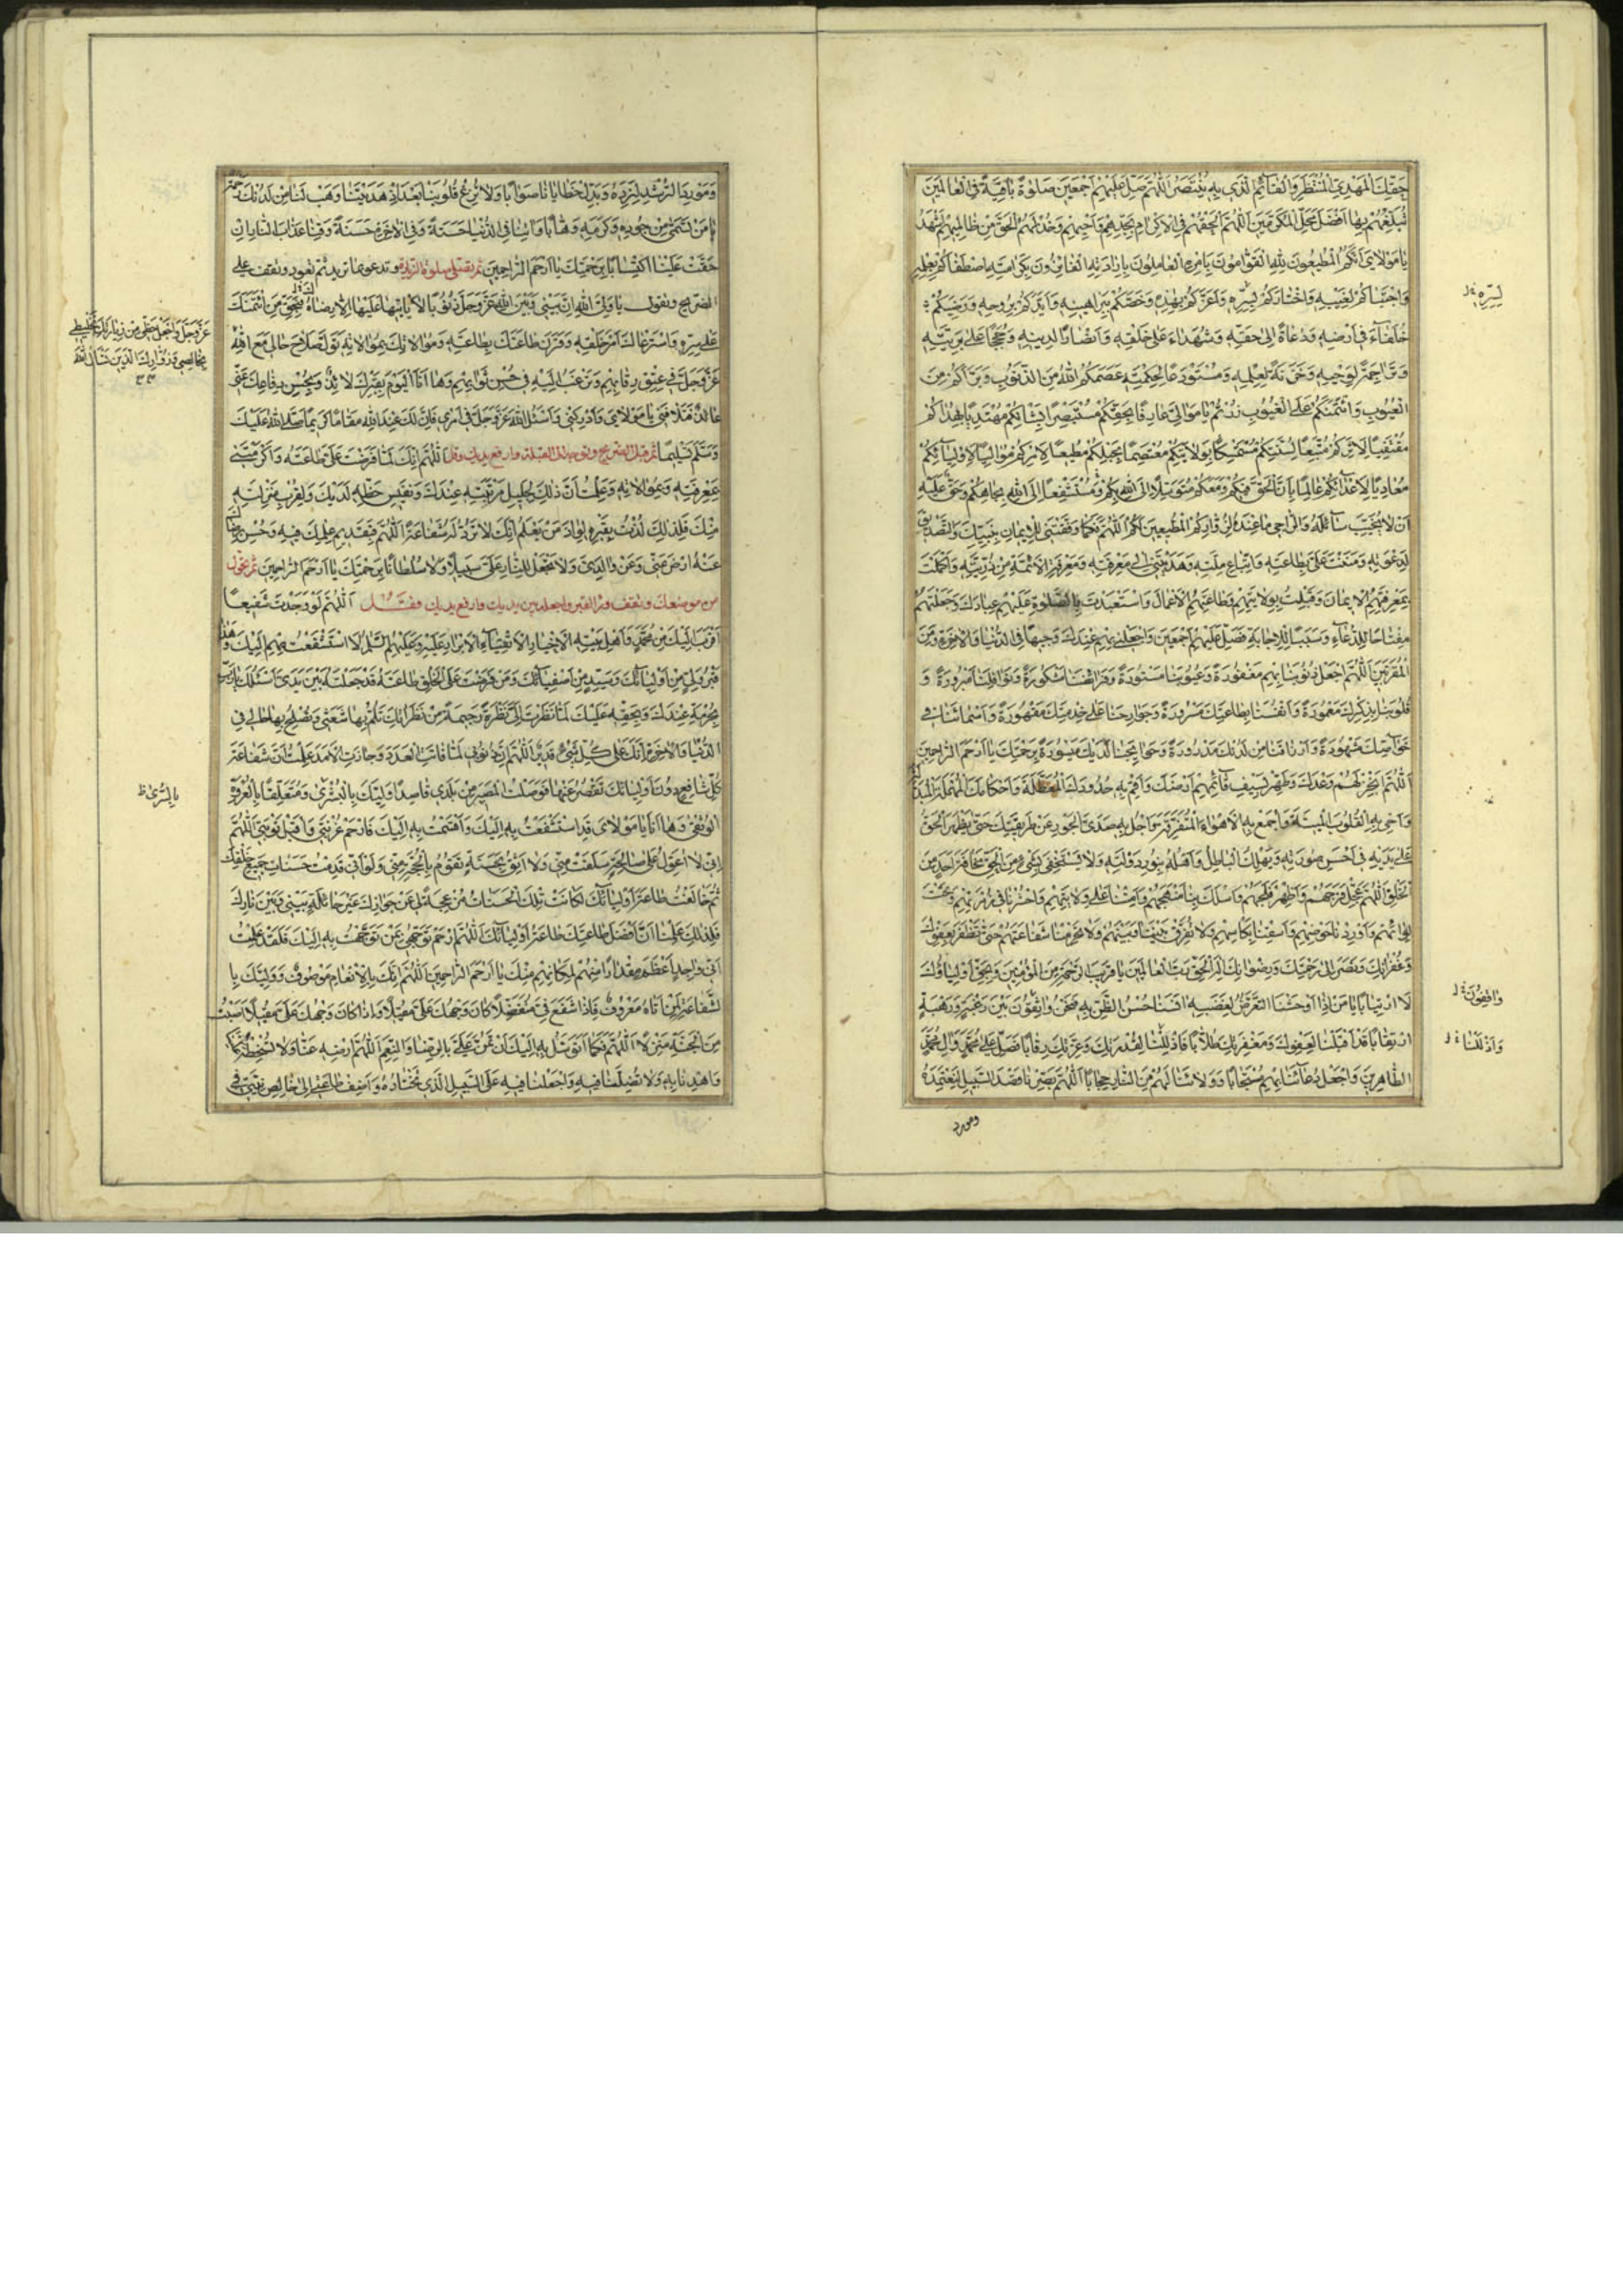 حقك المهدي المنتظر والقائم الذي به ينتصر اللهم صل عليهم اجمعين صلوة باقية في العالمين
تبلغهم بها افضل محل المكرمين اللهم الحقهم في الاكرام بجدهم وابيهم وخذ لهم الحق من ظالميهم اشهد
يا مولاي انكم المطيعون لله القوامون بامره العاملون بارادته الفائزون بكرامته اصطفاكم بعلمه
واجتباكم لغيبه واختاركم لسره واعزكم بهداه وخصكم ببراهينه وايدكم بروحه ورضيكم
خلفاء في ارضه ودعاة الى حقه وشهداء على خلقه وانصارا لدينه وحججا على بريته
وتراجمة لوحيه وخزنة لعلمه ومستودعا لحكمته عصمكم الله من الذنوب وبرأكم من
العيوب وائتمنكم على الغيوب زرتكم يا موالي عارفا بحقكم مستبصرا بشانكم مهتديا بهداكم
مقتفيا لاثركم متبعا لسنتكم متمسكا بولايتكم معتصما بحبلكم مطيعا لامركم مواليا لاوليائكم
معاديا لاعدائكم عالما بان الحق فيكم ومعكم متوسلا الى الله بكم مستشفعا الى الله بجاهكم وحق عليه
ان لا يخيب سائله والراجي ما عنده لزواركم المطيعين لامركم اللهم فكما وفقتني للايمان بنبيك والتصديق
لدعوته ومننت علي بطاعته واتباع ملته وهديتني الى معرفته ومعرفة الائمة من ذريته واكملت
بمعرفتهم الايمان وقبلت بولايتهم وطاعتهم الاعمال واستعبدت بالصلوة عليهم عبادك وجعلتهم
مفتاحا للدعاء وسببا للاجابة فصل عليهم اجمعين واجعلني بهم عندك وجيها في الدنيا والاخرة ومن
المقربين اللهم اجعل ذنوبنا بهم مغفورة وعيوبنا مستورة وفرائضنا مشكورة ونوافلنا مبرورة و
قلوبنا بذكرك معمورة وانفسنا بطاعتك مسرورة وجوارحنا على خدمتك مقهورة واسماءنا في
خواصك مشهورة وارزاقنا من لدنك مدرورة وحوائجنا لديك ميسورة برحمتك يا ارحم الراحمين
اللهم انجز لهم وعدك وطهر بسيف قائمهم ارضك واقم به حدودك المعطلة واحكامك المهملة والمبدلة
واحي به القلوب الميتة واجمع به الاهواء المتفرقة واجل به صدى الجور عن طريقتك حتى يظهر الحق
على يديه في احسن صورته ويهلك الباطل واهله بنور دولته ولا يستخفي بشيء من الحق مخافة احد من
الخلق اللهم عجل فرجهم واظهر فلجهم واسلك بنا منهجهم وامتنا على ولايتهم واحشرنا في زمرتهم وتحت
لوائهم واوردنا حوضهم واسقنا بكاسهم ولا تفرق بيننا وبينهم ولا تحرمنا شفاعتهم حتى نظفر بعفوك
وغفرانك ونصير الى رحمتك ورضوانك اله الحق رب العالمين يا قريب الرحمة من المؤمنين ونحن اولياؤك
لا ارتيابا يا من اذا اوحشنا التعرض لغضبه آنسنا حسن الظن به فنحن واثقون بين رغبة ورهبة
ارتقابا قد اقبلنا لعفوك ومغفرتك طلابا فاذللنا لقدرتك وعزتك رقابا فصل على محمد وآل محمد
الطاهرين واجعل دعائنا بهم مستجابا وولاءنا لهم من النار حجابا اللهم بصرنا قصد السبيل لنعتمده
ومورد
لسره
واثقون
واذللنا
ومورد الرشد لنرده وبدل خطايانا صوابا ولا تزغ قلوبنا بعد اذ هديتنا وهب لنا من لدنك رحمة
يا من تسمى من جوده وكرمه وهابا وآتنا في الدنيا حسنة وفي الآخرة حسنة وقنا عذاب النار ان
حقت علينا اكتسابا برحمتك يا ارحم الراحمين ثم تصلي صلوة الزيارة وتدعو بما تريد ثم تعود وتقف على
الضريح وتقول يا ولي الله ان بيني وبين الله عز وجل ذنوبا لا ياتي عليها الا رضاك فبحق من ائتمنك
على سره واسترعاك امر خلقه وقرن طاعتك بطاعته وموالاتك بموالاته تول صلاح حالي مع الله
عز وجل
عائذ فتلافني يا مولاي وادركني واسئل الله عز وجل في امري فان لك عند الله مقاما كريما صلى الله عليك
وسلم تسليما ثم قبل الضريح وتوجه الى القبلة وارفع يديك وقل اللهم انك لما فرضت علي طاعته واكرمتني
بمعرفته وبموالاته وعلمت ان ذلك لجليل مرتبته عندك ونفيس حظه لديك ولقرب منزلته
منك فلذلك لذت بقبره لواذ من يعلم انك لا ترد له شفاعة اللهم فبقديم علمك فيه وحسن رضاك
عنه ارض عني وعن والدي ولا تجعل للنار علي سبيلا ولا سلطانا برحمتك يا ارحم الراحمين ثم تتحول
من موضعك وتقف وراء القبر واجعله بين يديك وارفع يديك وقل اللهم لو وجدت شفيعا
اقرب اليك من محمد واهل بيته الاخيار الاتقياء الابرار عليه وعليهم السلام لاستشفعت بهم اليك وهذا
قبر ولي من اوليائك وسيد من اصفيائك ومن فرضت على الخلق طاعته قد جعلته بين يدي اسئلك يا رب
بحرمته عندك وبحقه عليك لما نظرت الي نظرة رحيمة من نظراتك تلم بها شعثي وتصلح بها حالي في
الدنيا والاخرة انك على كل شيء قدير اللهم ان ذنوبي لما فاتت العدد وجازت الامد علمت ان شفاعة
كل شافع دون اوليائك تقصر عنها فوصلت المسير من بلدي قاصدا وليك بالبشرى ومتعلقا بالعروة
الوثقى وها انا يا مولاي قد استشفعت به اليك واقسمت به اليك فارحم غربتي واقبل توبتي اللهم
اني لا اعول على صالحة سلفت مني ولا اثق بحسنة تقوم بالحجة عني ولو اني قدمت حسنات جميع خلقك
ثم خالفت طاعة اوليائك لكانت تلك الحسنات مزعجة لي عن جوارك غير حائلة بيني وبين نارك
فلذلك علمت ان افضل طاعتك طاعة اوليائك اللهم ارحم توجهي بمن توجهت به اليك فلقد علمت
اني
لشفاعة لمن اتاه معروف فاذا شفع في متفضلا كان وجهك علي مقبلا واذا كان وجهك علي مقبلا اصبت
من الجنة منزلا اللهم فكما اتوسل به اليك ان تمن علي بالرضا والنعم اللهم ارضه عنا ولا تسخطه علينا
واهدنا به ولا تضلنا فيه واجعلنا فيه على السبيل الذي تختاره واضف طاعتي الى خالص نيتي في
عز وجل واجعل حظي من زيارتك تخليطي
بخالصي زوارك الذين تسال الله
بالبشرى